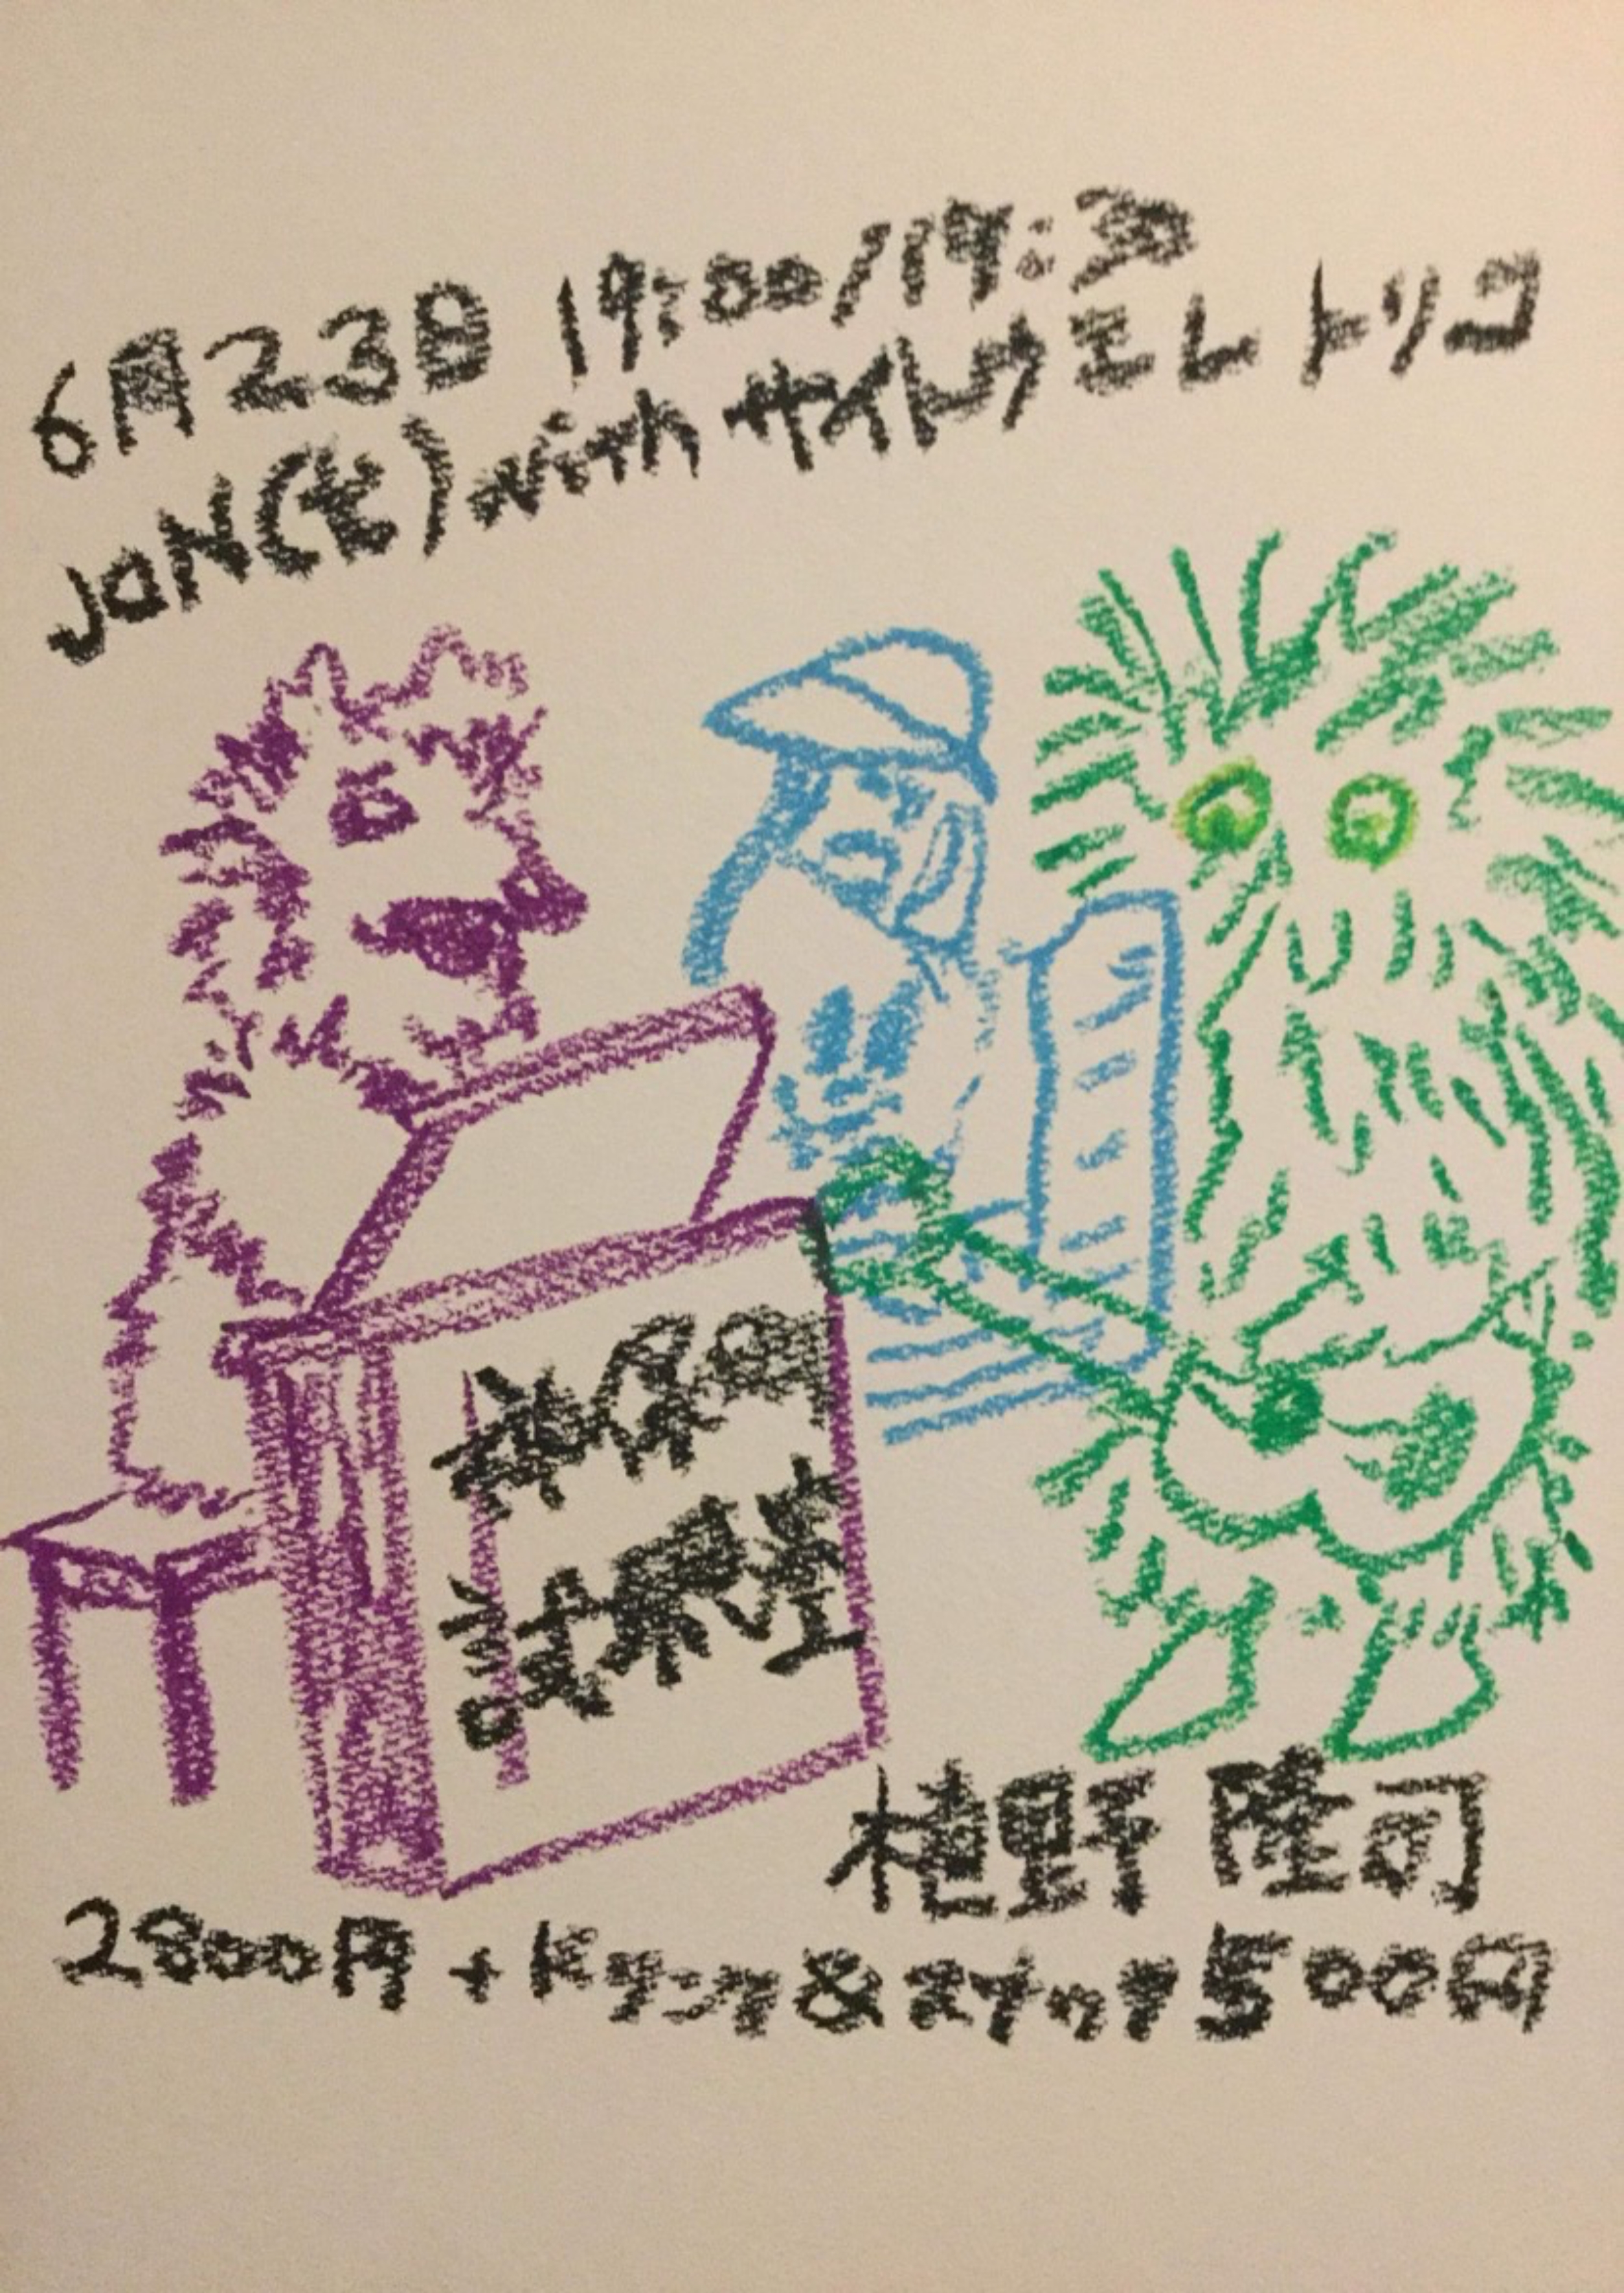 6月23日 19:00/19:30
JON(犬)with サイトウエレトリコ
神保町
試聴室
植野隆司
2800円+ドリンク&スナック500円